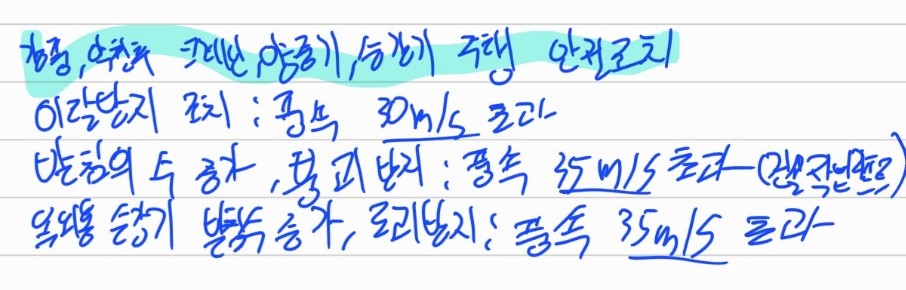 강풍, 악천후 크레인, 양중기, 승강기 주행 안전조치
이탈방지 조치 : 풍속 30m/s 초과
받침의 수 증가, 붕괴 방지 : 풍속 35m/s 초과 (건설작업리프트)
옥외용 승강기 받침수 증가, 도괴방지 : 풍속 35m/s 초과